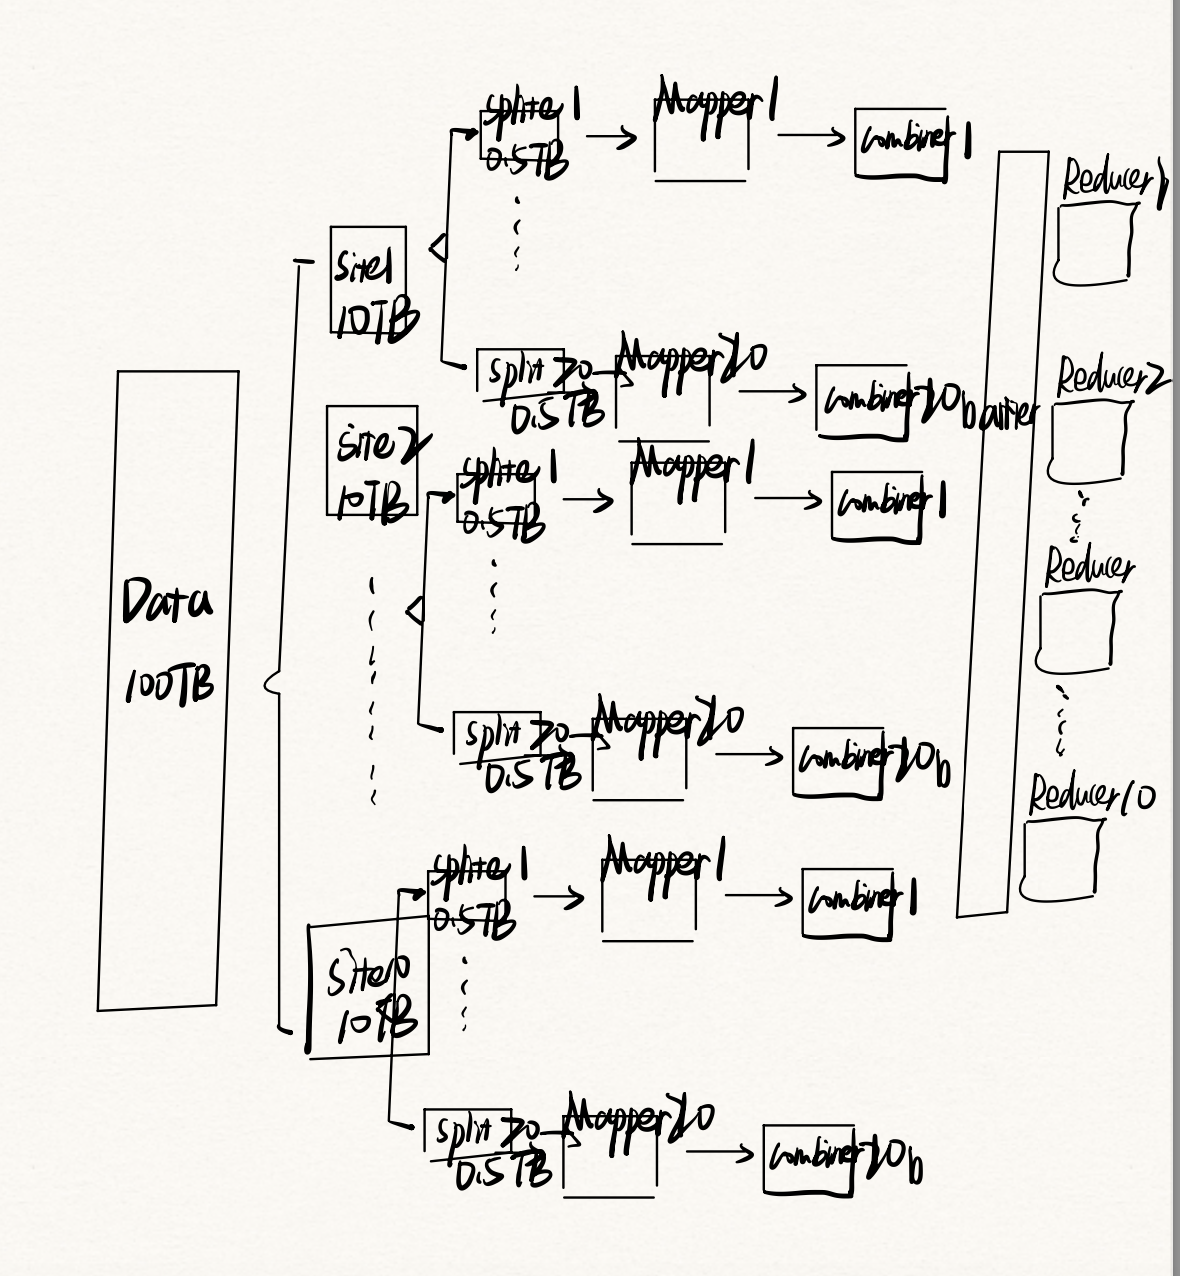 Data
100TB
Site1
10TB
Site2
10TB
Site10
10TB
splite 1
0.5TB
Mapper 1
combiner 1
split 20
0.5TB
Mapper 20
combiner 20
splite 1
0.5TB
Mapper 1
combiner 1
split 20
0.5TB
Mapper 20
combiner 20 b
splite 1
0.5TB
Mapper 1
combiner 1
split 20
0.5TB
Mapper 20
combiner 20 b
barrier
Reducer 1
Reducer 2
Reducer
Reducer 10